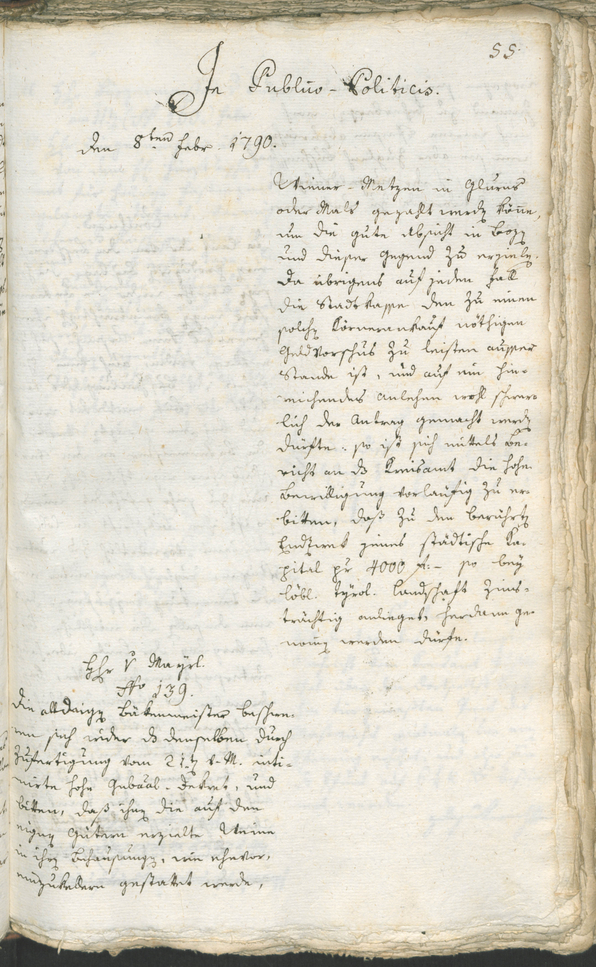 55.
In Publico-Politicis.
den 8ten Febr. 1790.
Wiener-Metzen in Glurns
oder Mals gezahlt werdn könne,
um die gute Absicht in Bozn
und dieser Gegend zu erzieln.
Da übrigens auf jeden Fall
die Stadtkasse den zu einem
solchn Körnerankauf nöthigen
Geldvorschus zu leisten ausser
Stande ist, und auf ein hin-
reichendes Anlehen wohl schwer-
lich der Antrag gemacht werdn
dürfte, so ist sich mittels Be-
richt an ds Kreisamt die hohe
Bewilligung vorläufig zu er-
bitten, daß zu dem berührtn
Endzwek jenes städtische Ka-
pital pr 4000 f:- so bey
löbl. tyrol. Landschaft zins-
trächtig anlieget, herdann ge-
nomn werden dürfe.
Hr v Mayrl.
No 139.
Die alldaign Bäkenmeister beschwe-
ren sich wider ds denselben durch
Zufertigung vom 21tn v. M. inti-
mirte hohe Gubäal-Dekret, und
bitten, daß ihn die auf den
eign Gütern erzielte Weine
in ihrn Behausungn, wie ehevor,
einzukellern gestattet werde,